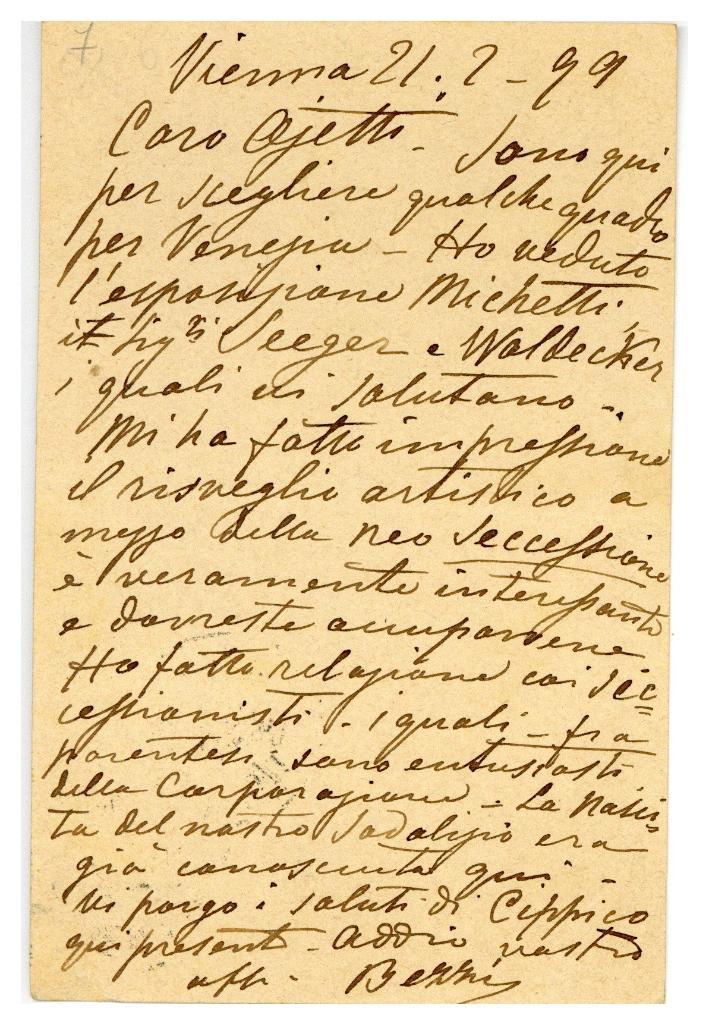 7
Vienna 21.2-99
Caro Ojetti - Sono qui
per scegliere qualche quadro
per Venezia - Ho veduto
l'esposizione Michetti,
i Sigri Seeger e Waldecker
i quali vi salutano -
Mi ha fatto impressione
il risveglio artistico a
mezzo della neo Seccessione
è veramente interessante
e dovreste occuparvene
Ho fatto relazione coi Sec=
cessionisti - i quali - fra
parentesi sono entusiasti
della Corporazione - La nasci=
ta del nostro Sodalizio era
già conosciuta qui -
Vi porgo i saluti di Cippico
qui presente - Addio vostro
aff. Bezzi